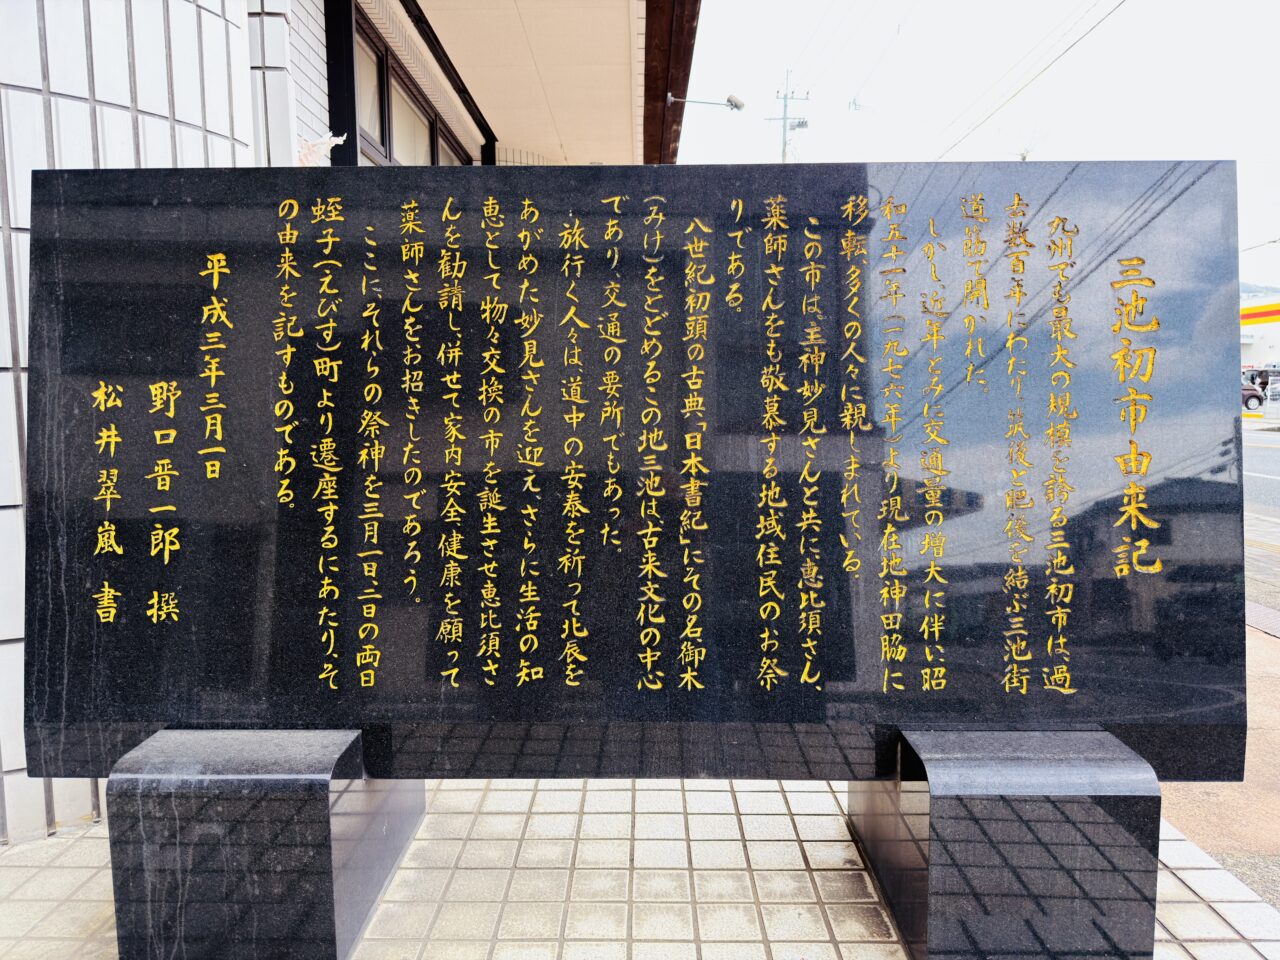 三池初市由来記
九州でも最大の規模を誇る三池初市は、過
去数百年にわたり、筑後と肥後を結ぶ三池街
道筋で開かれた。
しかし、近年とみに交通量の増大に伴い昭
和五十一年(一九七六年)より現在地神田脇に
移転、多くの人々に親しまれている。
この市は、主神妙見さんと共に、恵比須さん、
薬師さんをも敬慕する地域住民のお祭
りである。
八世紀初頭の古典、「日本書紀」にその名御木
(みけ)をとどめるこの地三池は、古来文化の中心
であり、交通の要所でもあった。
旅行く人々は、道中の安泰を祈って北辰を
あがめた妙見さんを迎え、さらに生活の知
恵として物々交換の市を誕生させ恵比須さ
んを勧請し、併せて家内安全、健康を願って
薬師さんをお招きしたのであろう。
ここに、それらの祭神を三月一日、二日の両日
蛭子(えびす)町より遷座するにあたり、そ
の由来を記すものである。
平成三年三月一日
野口晋一郎 撰
松井翠嵐 書